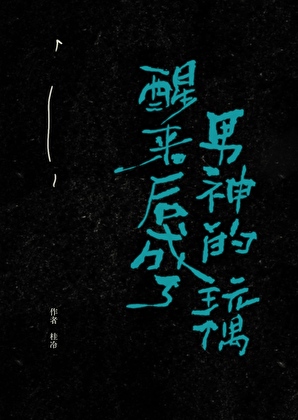 醒来后成了
男神的玩偶
作者 桂冷